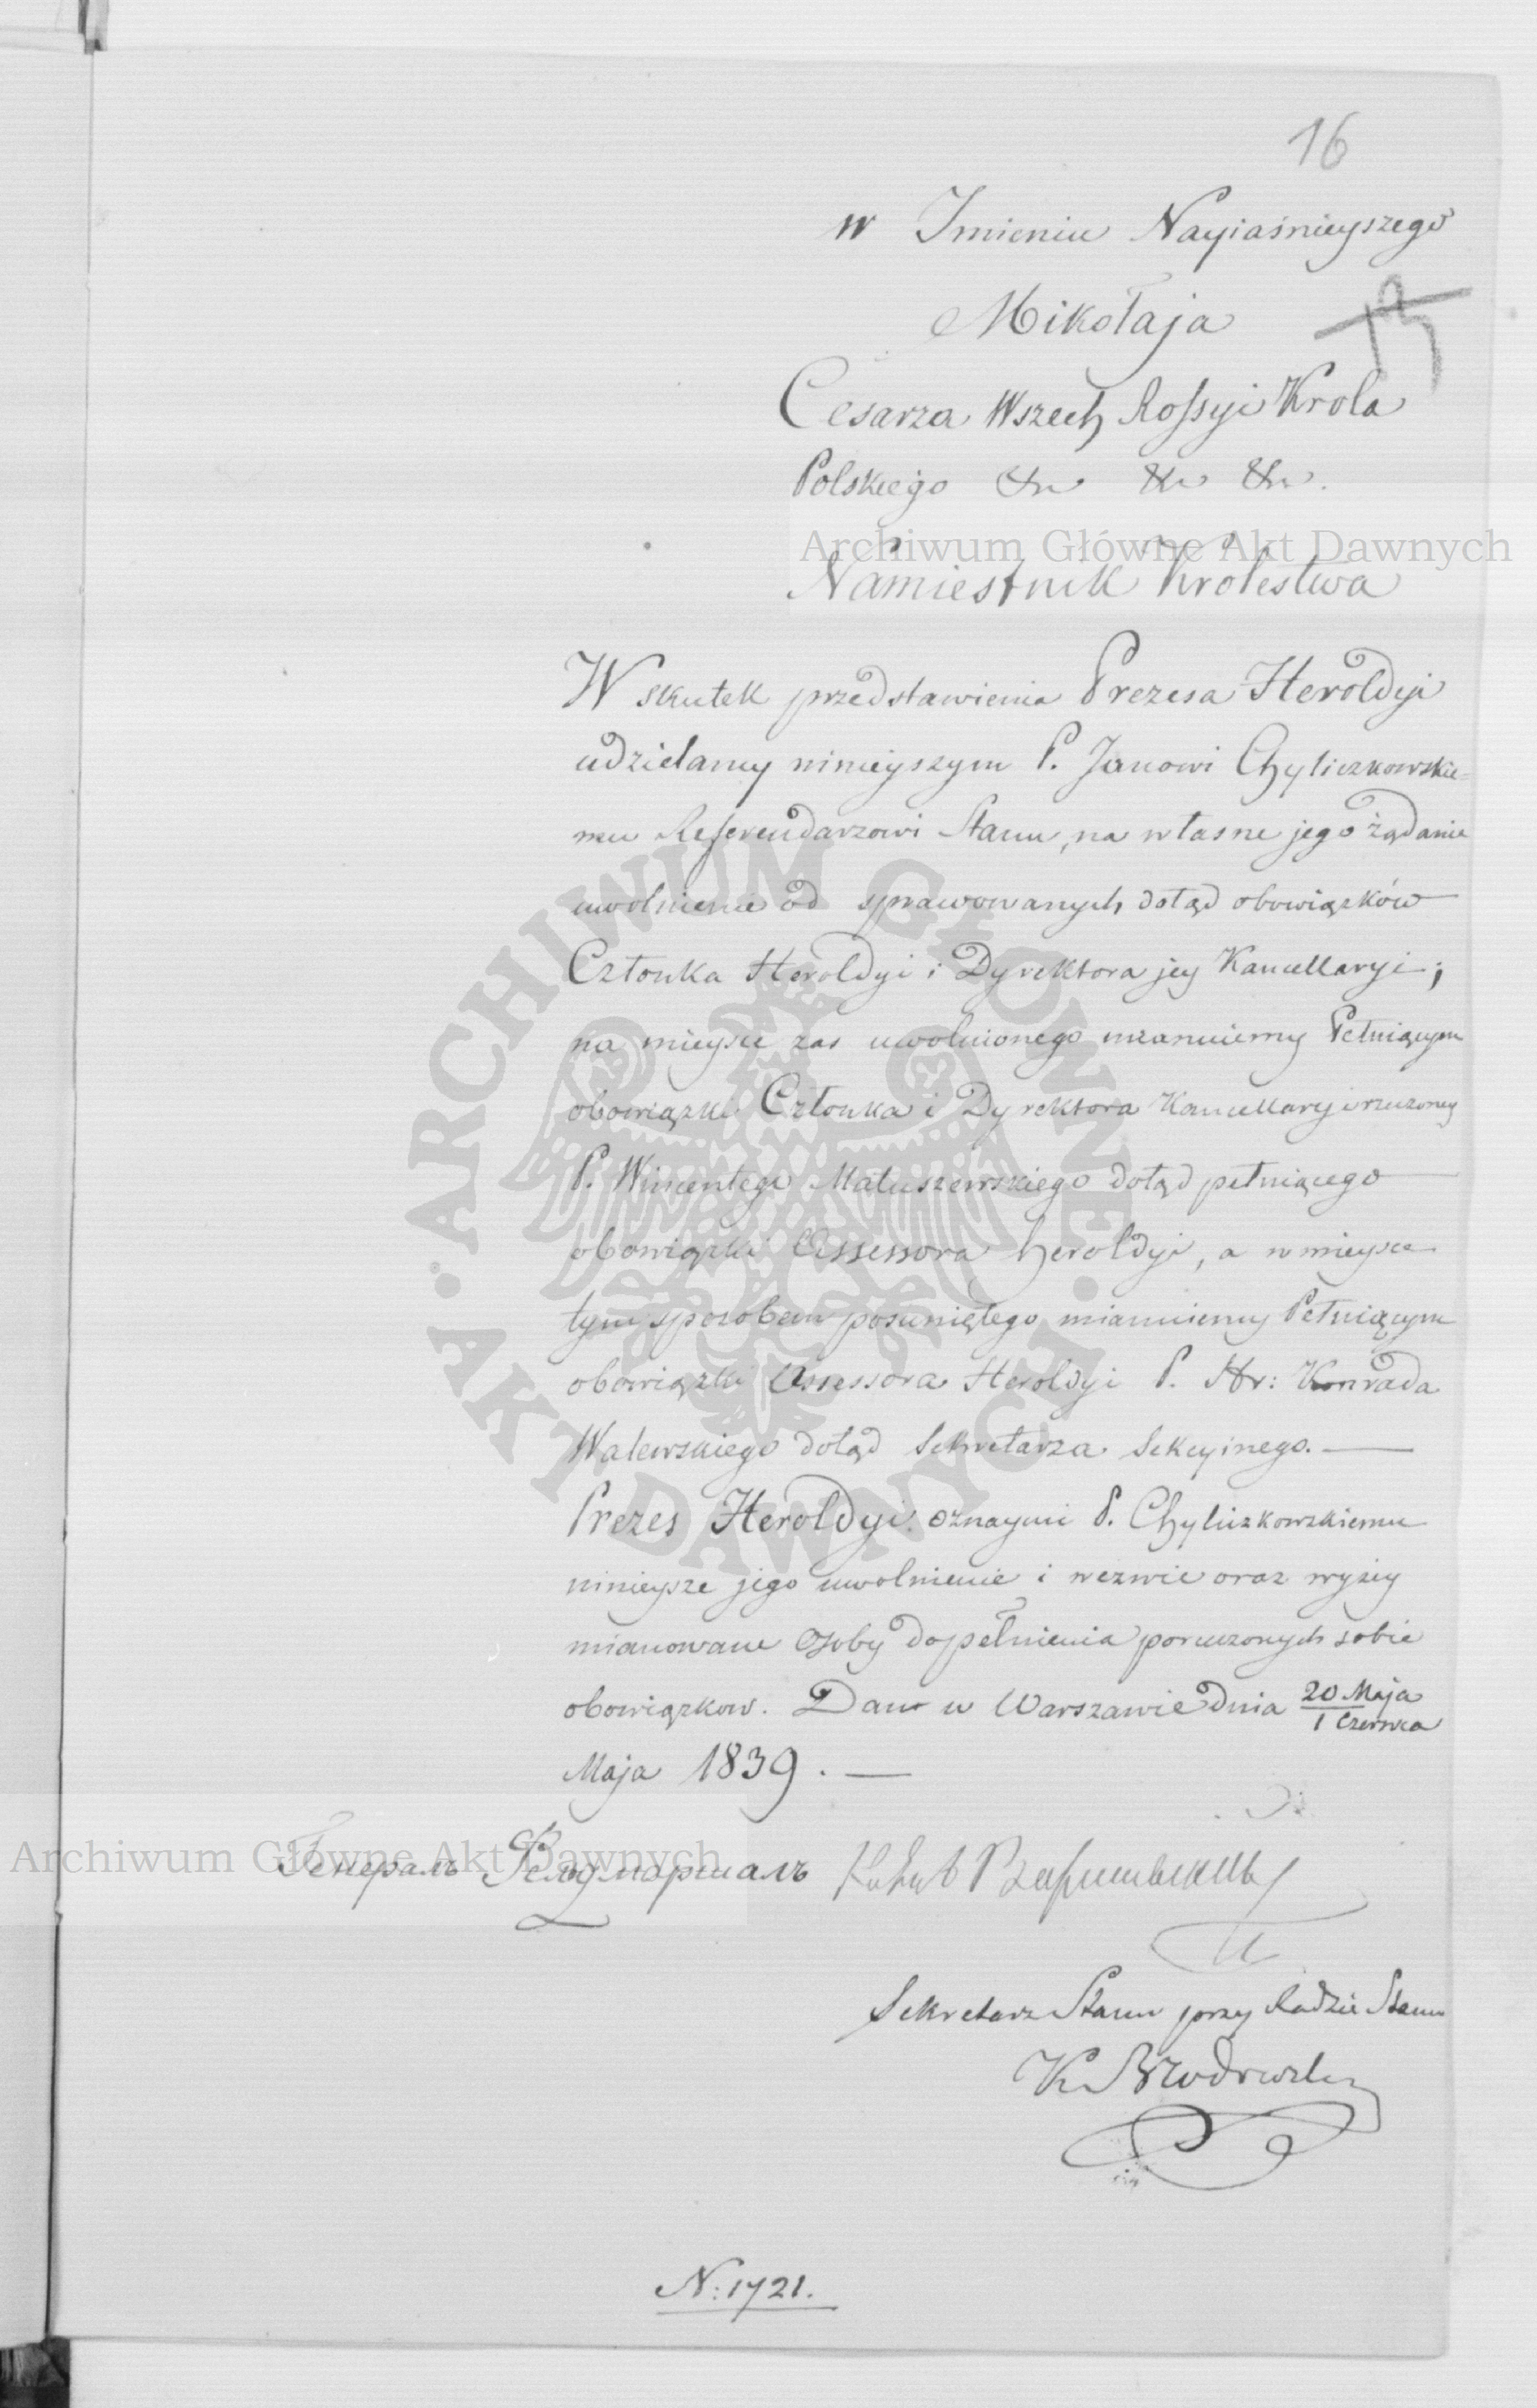 16
w Imieniu Nayiaśnieyszego
Mikołaja
Cesarza Wszech Rossyi Krola
Polskiego &c &c &c.
Archiwum Główne Akt Dawnych
Namiestnik Krolestwa
W skutek przedstawienia Prezesa Heroldyi
udzielamy ninieyszym P. Janowi Chyliczkowskie=
mu Referendarzowi Stanu, na własne jego żądanie
uwolnienie od sprawowanych dotąd obowiązków
Członka Heroldyi i Dyrektora jey Kancellaryi;
na mieysce zas uwolnionego mianuiemy Pełniącym
obowiązki Członka i Dyrektora Kancellaryi rzeczoney
P. Wincentego Matuszewskiego dotąd pełniącego
obowiązki Assessora heroldyi, a w mieysce
tym sposobem posuniętego mianuiemy Pełniącym
obowiązki Assessora Heroldyi P. Hr: Konrada
Walewskiego dotąd Sekretarza Sekcyinego. —
Prezes Heroldyi oznaymi P. Chyliczkowskiemu
ninieysze jego uwolnienie i wezwie oraz wyżey
mianowane osoby dopełnienia poruczonych sobie
obowiązkow. Dan w Warszawie dnia 20 Maja
1 Czerwca
Maja 1839. —
Генералъ Фельдмаршалъ
Archiwum Główne Akt Dawnych
Sekretarz Stanu przy Radzie Stanu
N: 1721.
ARCHIWUM GŁÓWNE · AKT DAWNYCH ·